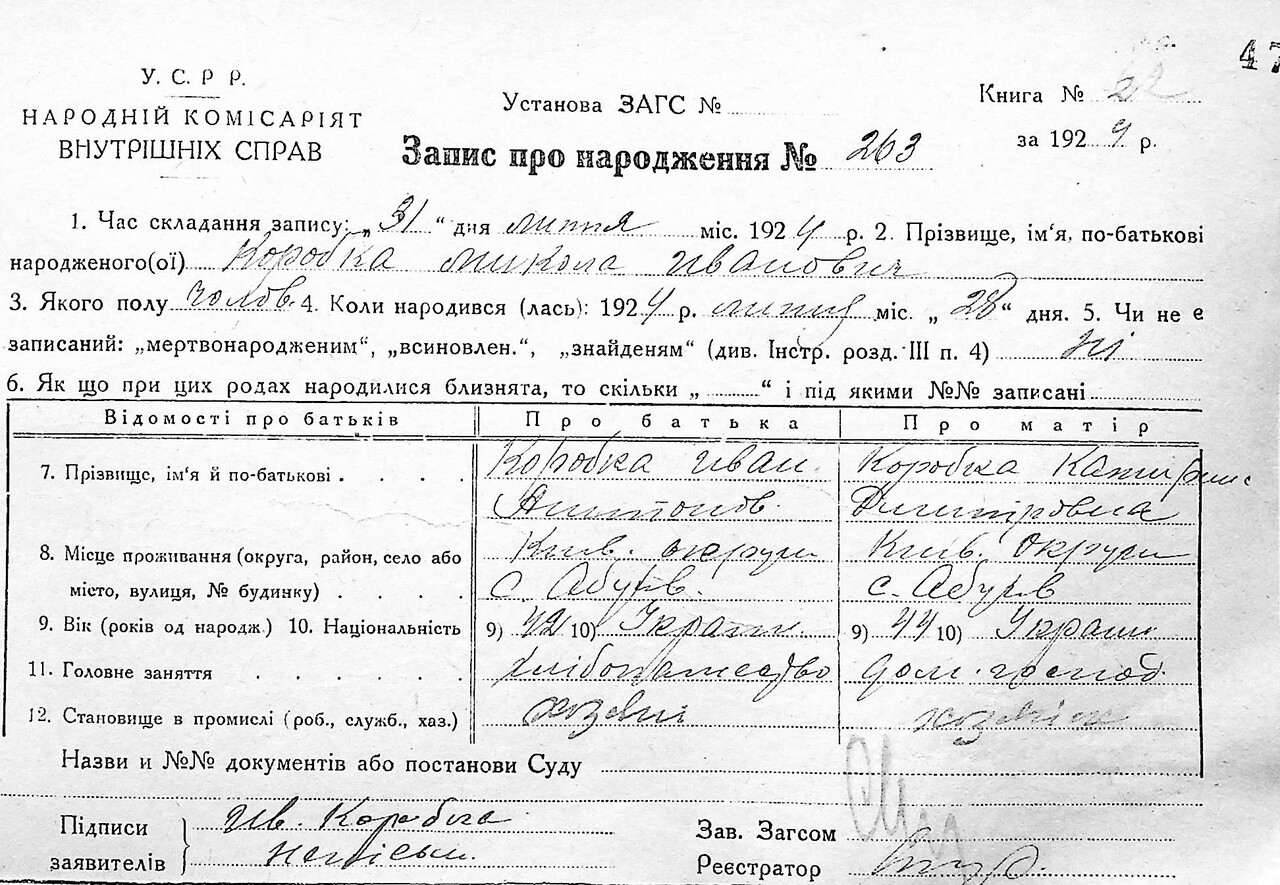 47
У. С. Р Р.
НАРОДНІЙ КОМІСАРІЯТ
ВНУТРІШНІХ СПРАВ
Установа ЗАГС №
Книга № 22
за 1924 р.
Запис про народження № 263
1. Час складання запису: „31“ дня липня міс. 1924 р. 2. Прізвище, ім‘я, по-батькові
народженого(ої) Коробка Микола Иванович
3. Якого полу чолов. 4. Коли народився (лась): 1924 р. липня міс. „28“ дня. 5. Чи не є
записаний: „мертвонародженим“, „всиновлен.“, „знайденям“ (див. Інстр. розд. III п. 4) Ні
6. Як що при цих родах народилися близнята, то скільки „ “ і під якими №№ записані
Відомості про батьків Про батька Про матір
7. Прізвище, ім‘я й по-батькові . . . . Коробка Иван Коробка Катирина
Антонов. Димитровна
8. Місце проживання (округа, район, село або Київ. округи Київ. округи
місто, вулиця, № будинку) . . . . с. с.
9. Вік (років од народж.) 10. Національність 9) 42 10) Україн. 9) 44 10) Україн.
11. Головне заняття . . . . . . хлібопашество дом. господ.
12. Становище в промислі (роб., служб., хаз.) хозяїн
Назви и №№ документів або постанови Суду
Підписи Ив. Коробка
заявителів неписьм.
Зав. Загсом
Реєстратор